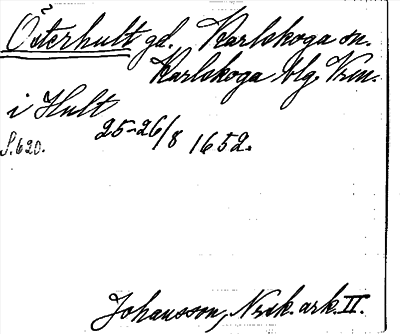 Österhult gd., Karlskoga sn.
Karlskoga blg. Vrm.
i Hult
25-26/8 1652.
S. 620.
Johansson, Nrik. ark. II.